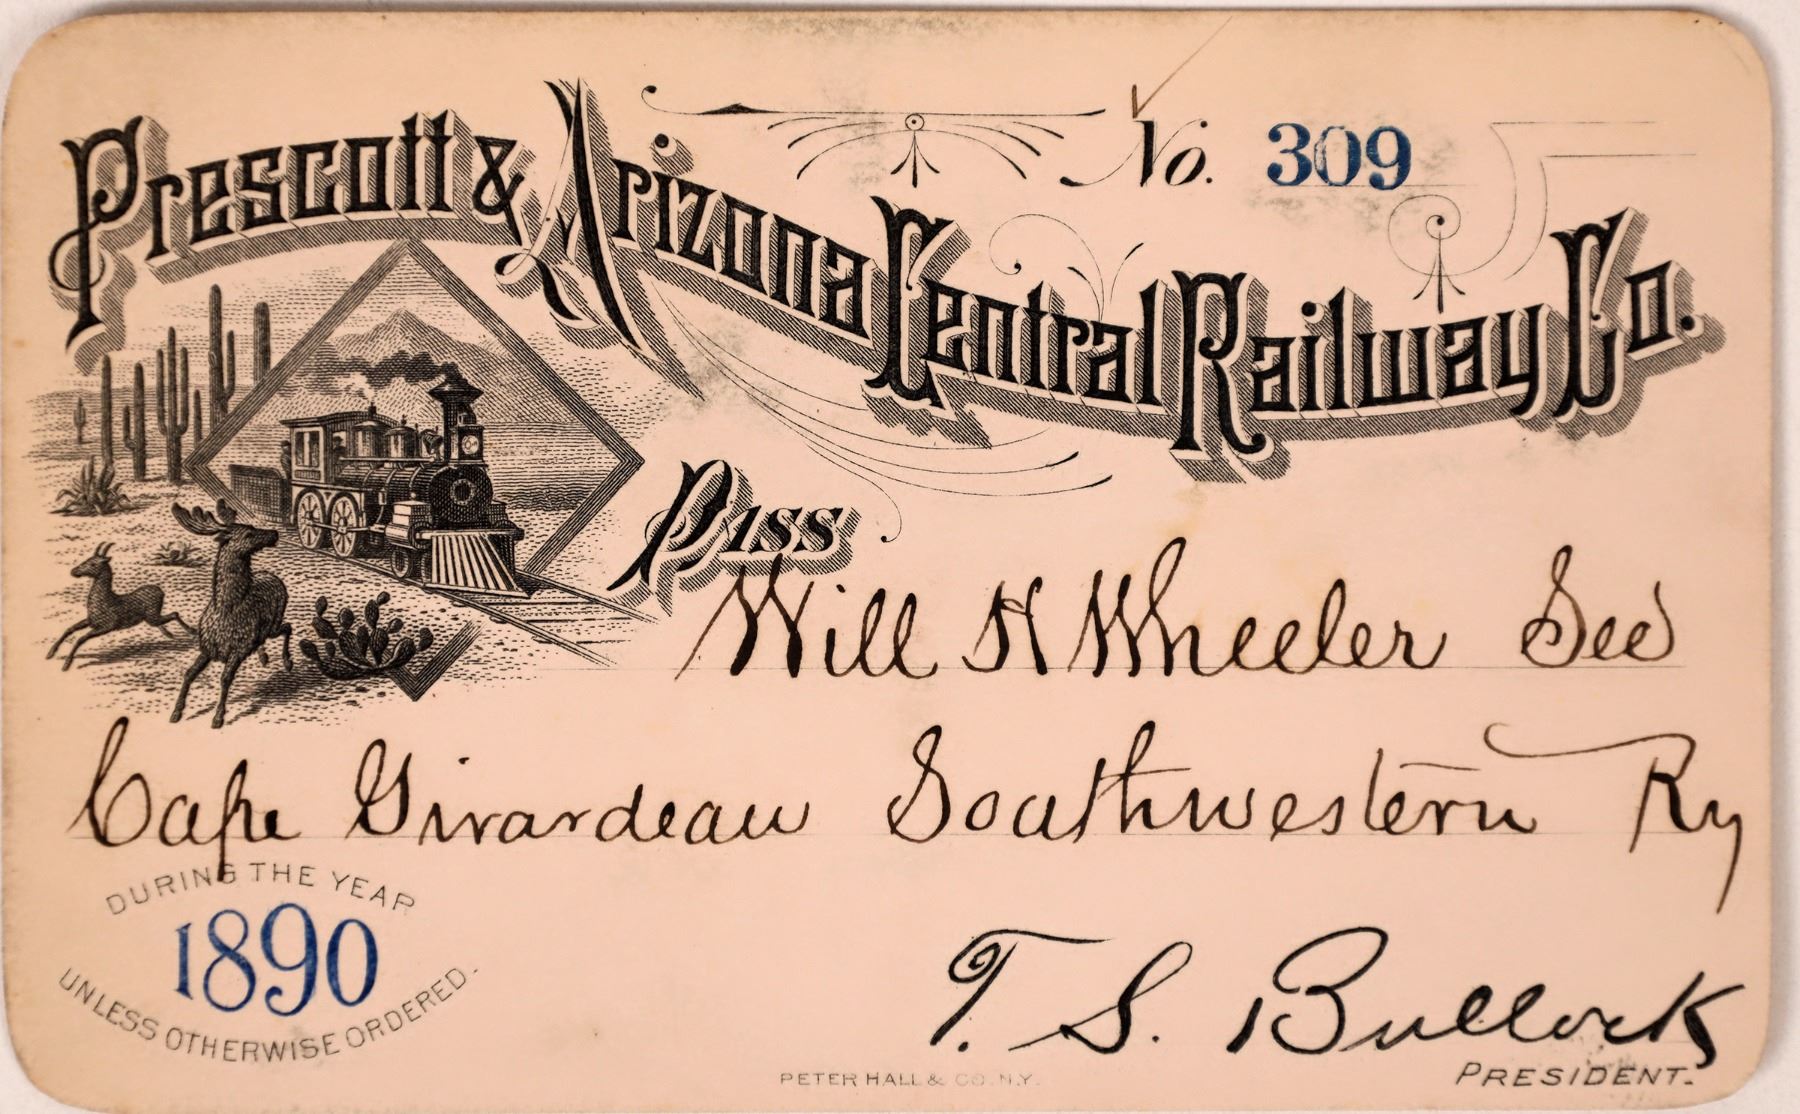 No. 309
Prescott & Arizona Central Railway Co.
Pass
Will H Wheeler Sec
Cape Girardeau Southwestern Ry
DURING THE YEAR
1890
UNLESS OTHERWISE ORDERED.
T. S. Bullock
PRESIDENT.
PETER HALL & CO. N.Y.